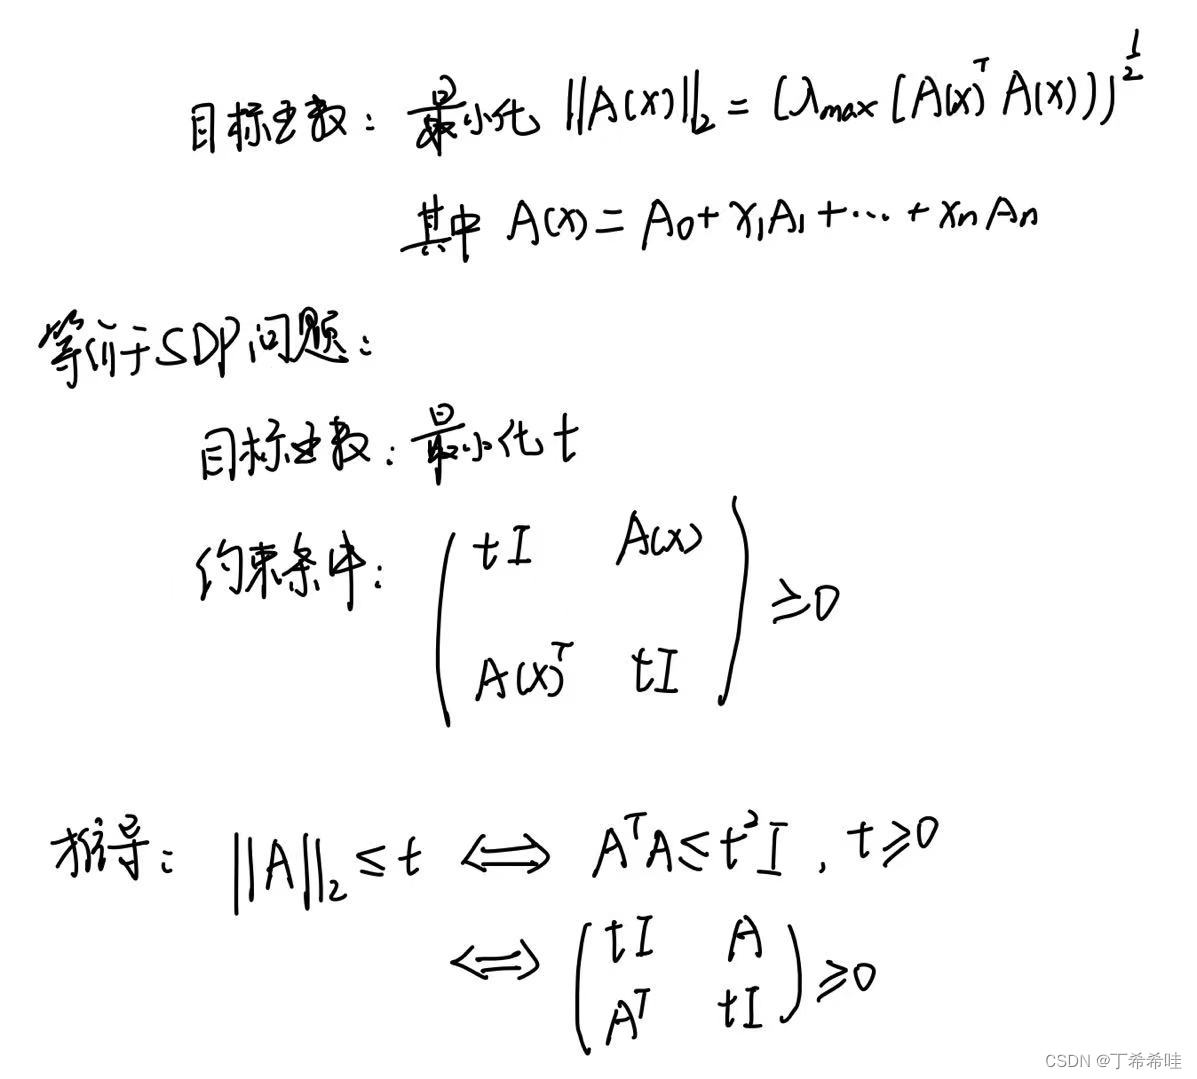 目标函数: 最小化 ||A(x)||₂ = (λmax(A(x)ᵀA(x)))^½
其中 A(x) = A₀ + x₁A₁ + ... + xₙAₙ
等价于SDP问题:
目标函数: 最小化 t
约束条件: ( tI A(x)
A(x)ᵀ tI ) ≥0
推导: ||A||₂ ≤ t ⟺ AᵀA ≤ t²I, t≥0
⟺ ( tI A
Aᵀ tI ) ≥0
CSDN @丁希希哇